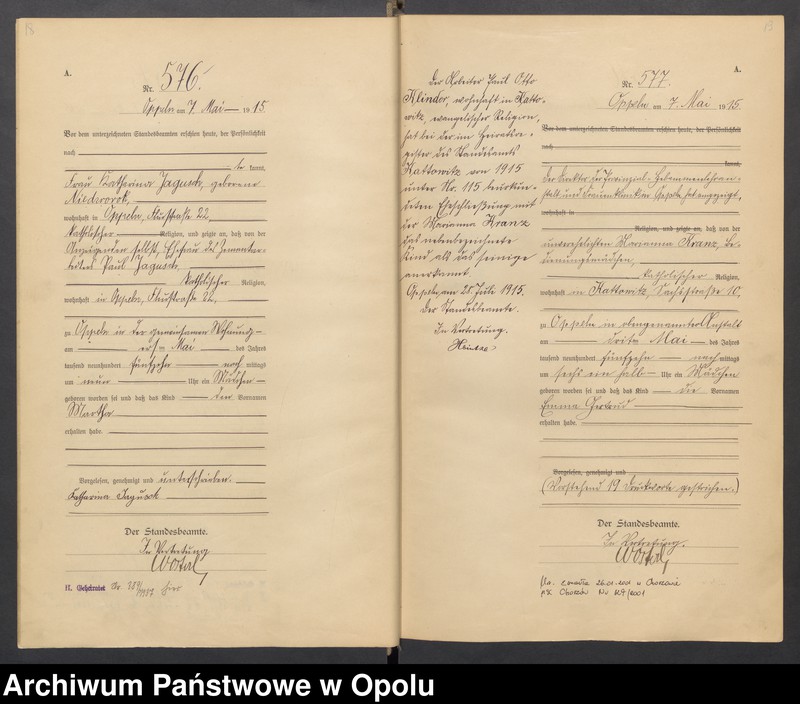 A.
Nr. 576.
Oppeln am 7. Mai 1915
Vor dem unterzeichneten Standesbeamten erschien heute, der Persönlichkeit
nach
kannt,
Frau Katharina Jagusch, geborene
wohnhaft in Oppeln, Flurstraße 22,
katholischer Religion, und zeigte an, daß von der
Anzeigenden selbst, Ehefrau des Zementar-
beiters Paul Jagusch,
katholischer Religion,
wohnhaft in Oppeln, Flurstraße 22,
zu Oppeln in der gemeinsamen Wohnung
am ersten Mai des Jahres
tausend neunhundert fünfzehn nach mittags
um neun Uhr ein Mädchen
geboren worden sei und daß das Kind den Vornamen
Martha
erhalten habe.
Vorgelesen, genehmigt und unterschrieben.
Katharina Jagusch
Der Standesbeamte.
In Vertretung
Wostal
Der Arbeiter Paul Otto
Klinder, wohnhaft in Katto-
witz, evangelischer Religion,
hat bei der im Heiratsre-
gister des Standesamts
Kattowitz von 1915
unter Nr. 115 beurkun-
deten Eheschließung mit
der Marianna Kranz
das nebenbezeichnete
Kind als das seinige
anerkannt.
Oppeln, am 28. Juli 1915.
Der Standesbeamte.
In Vertretung.
A.
Nr. 577.
Oppeln am 7. Mai 1915
Vor dem unterzeichneten Standesbeamten erschien heute, der Persönlichkeit
nach
kannt,
Der Direktor der Provinzial-Hebammenlehran-
stalt und Frauenklinik in Oppeln hat angezeigt,
wohnhaft in
Religion, und zeigte an, daß von der
unverehelichten Marianna Kranz, Be-
dienungsmädchen,
katholischer Religion,
wohnhaft in Kattowitz, 10,
zu Oppeln in obengenannter Anstalt
am dritten Mai des Jahres
tausend neunhundert fünfzehn nach mittags
um sechs ein halb Uhr ein Mädchen
geboren worden sei und daß das Kind die Vornamen
Emma Gertrud
erhalten habe.
Vorgelesen, genehmigt und
(Vorstehend 19 Druckworte gestrichen.)
Der Standesbeamte.
In Vertretung.
Wostal
zmarła 26.01.2001 w Chorzowie
Chorzów Nr /2001
Archiwum Państwowe w Opolu